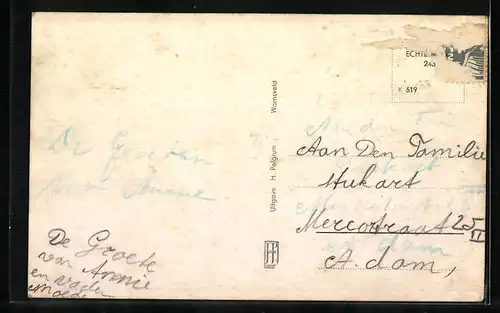 ECHTE
245
K 519
Uitgave H. Pelgrim Warnsveld
De Groeten
van Annie
Aan Den Familie
Hukart
Mercotraat 25 II
A.dam,
De Groete
van Annie
en vader
Moeder